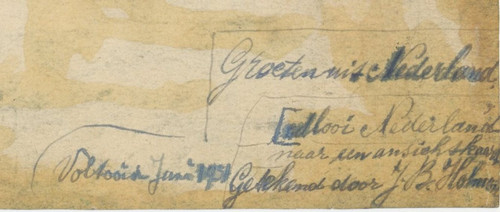 Groeten uit Nederland
Nederland
naar een ansichtskaart
Voltooid Juni
Getekend door J. B.